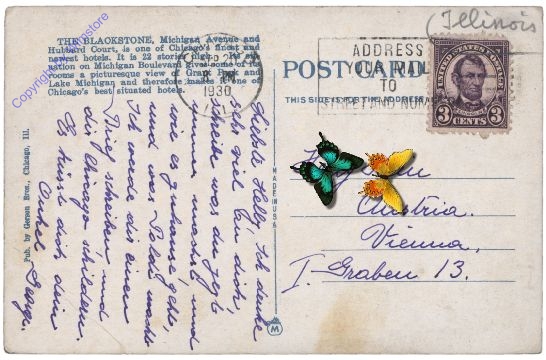 (Illinois
THE BLACKSTONE, Michigan Avenue and
Hubbard Court, is one of Chicago's finest and
newest hotels. It is 22 stories high. Its
ation on Michigan Boulevard gives some of its
rooms a picturesque view of Grant Park and
Lake Michigan and therefore makes it one of
Chicago's best situated hotels.
Copyright
1930
ADDRESS
YOUR MAIL
TO
STREET AND NUM
UNITED STATES POSTAGE
3 CENTS 3
POSTCARD
THIS SIDE FOR THE ADDRESS
Pub. by Gerson Bros., Chicago, Ill.
MADE IN USA
M
Liebste Helly, Ich denke
sehr viel an dich,
schreibe was du jetzt
immer machst und
wie es zuhause geht,
und was Poldi macht
Ich werde dir einen
Brief schreiben und
dir Chicago schildern.
Es küsst dich dein
Onkel George.
Austria.
Vienna,
I. Graben 13.